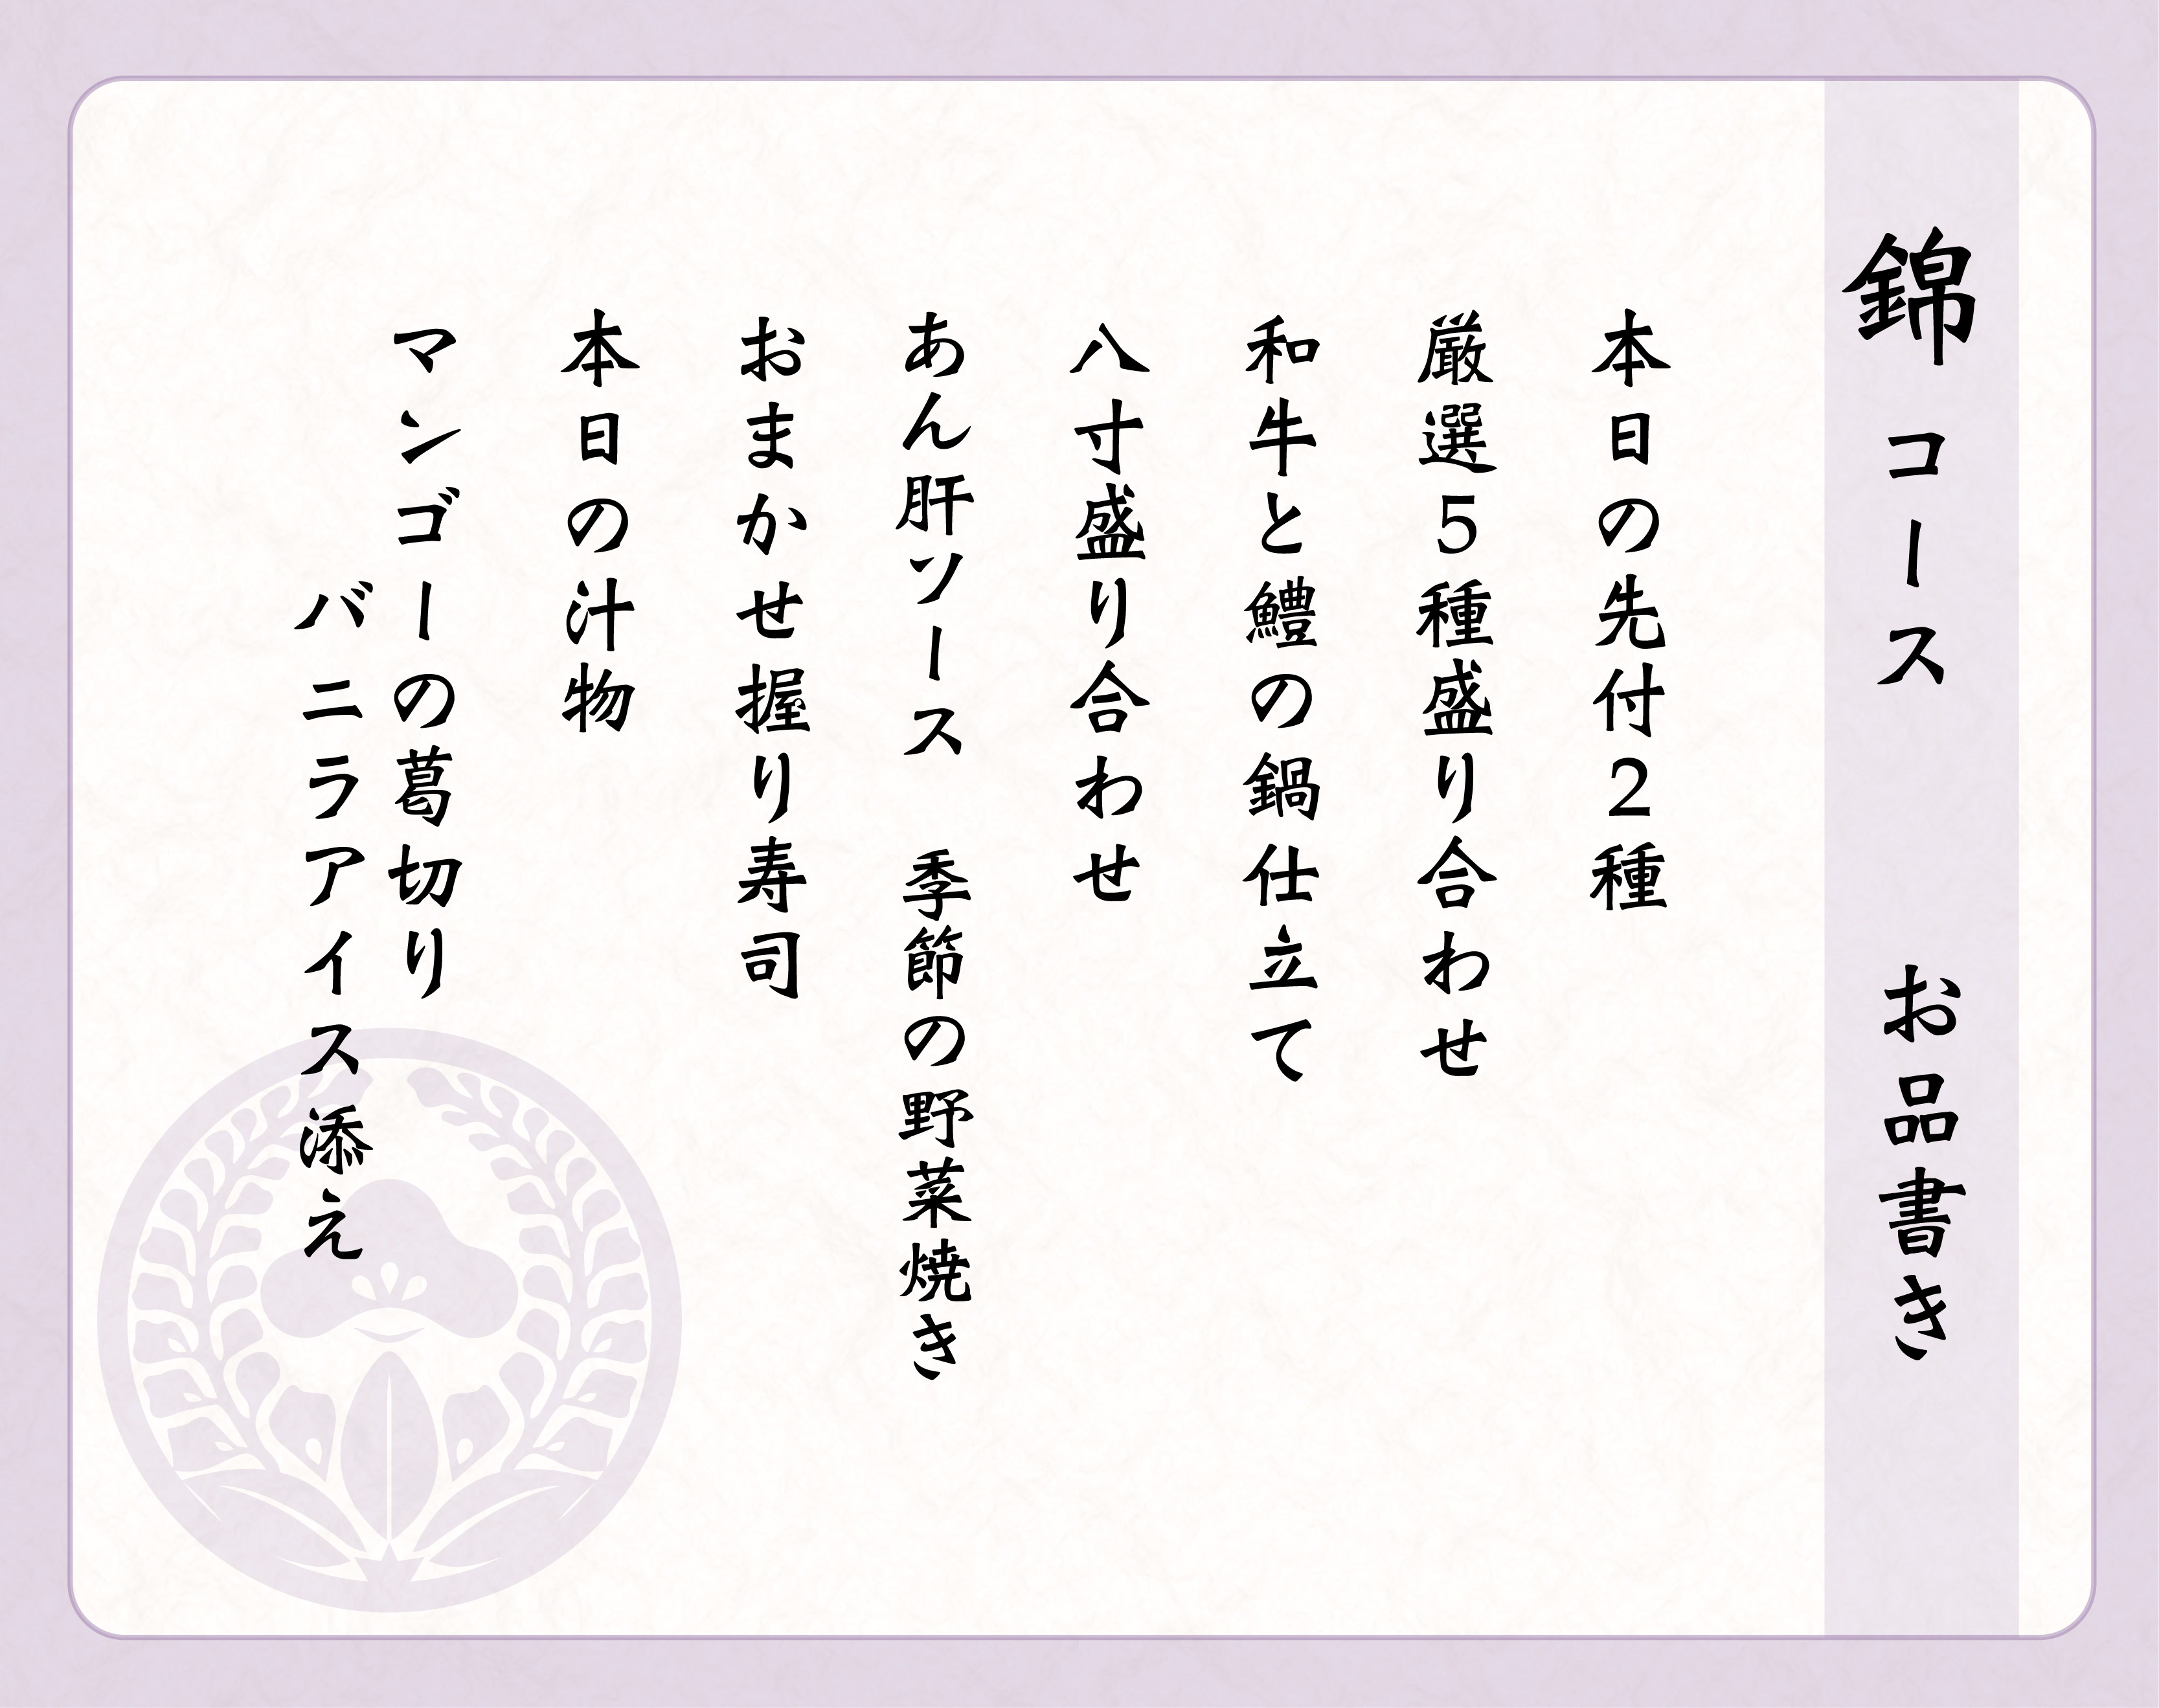 錦 コース お品書き
本日の先付２種
厳選５種盛り合わせ
和牛と鱧の鍋仕立て
八寸盛り合わせ
あん肝ソース 季節の野菜焼き
おまかせ握り寿司
本日の汁物
マンゴーの葛切り
バニラアイス添え